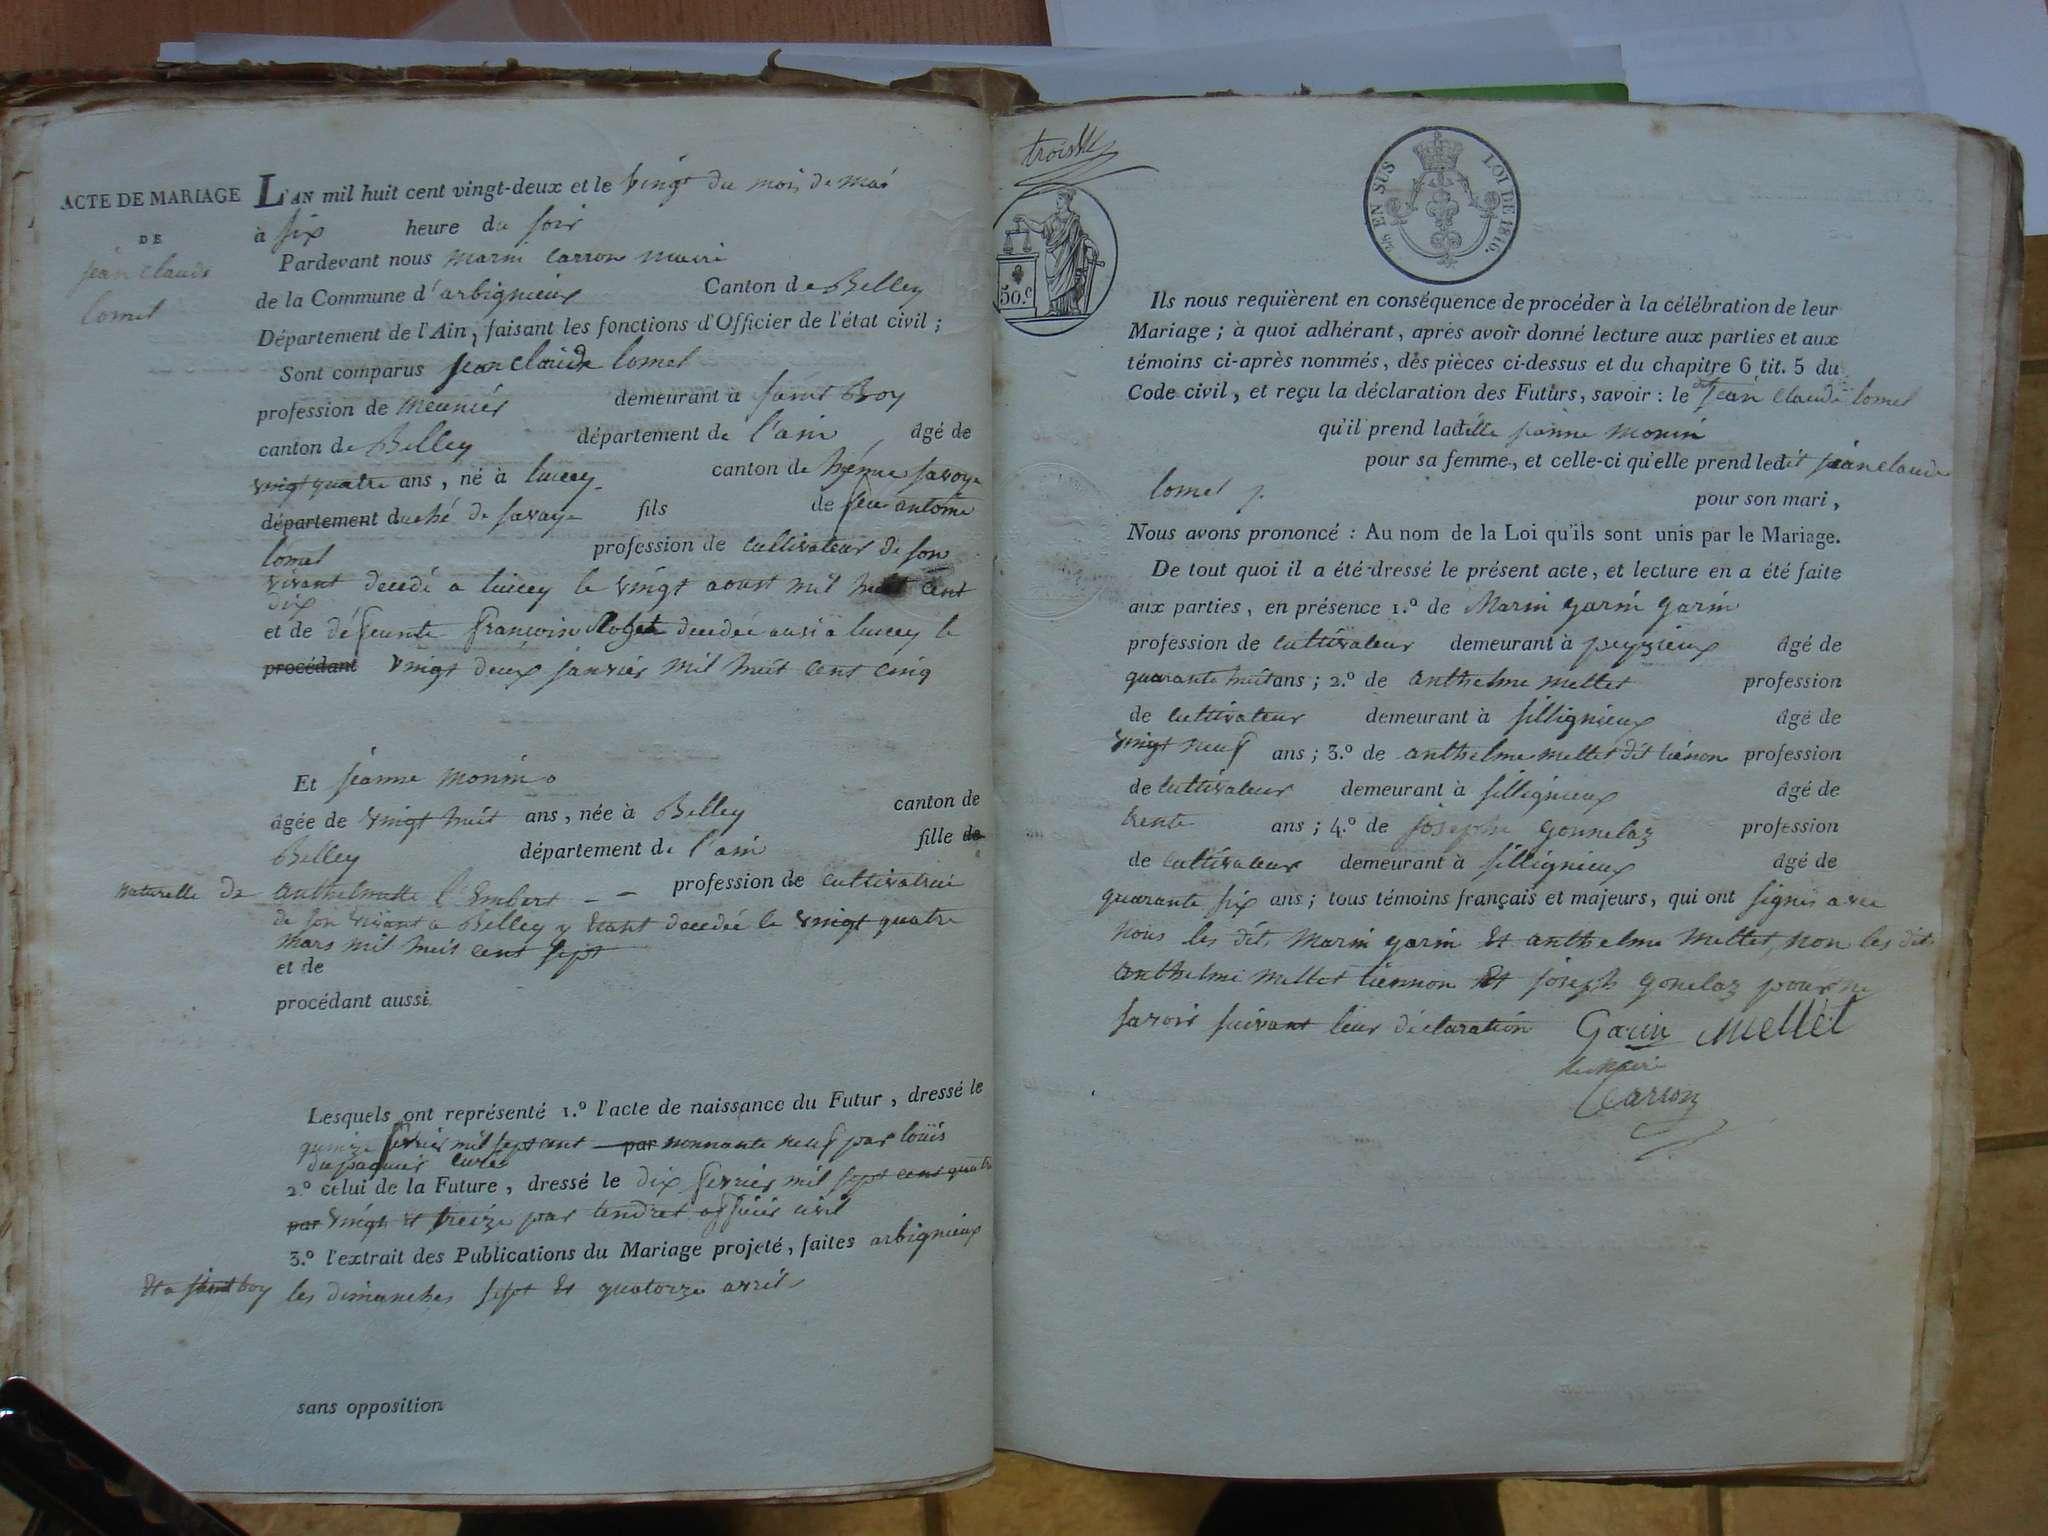 ACTE DE MARIAGE
DE
jean claude
lomet
L'AN mil huit cent vingt-deux et le vingt du mois de mai
à six heure du soir
Pardevant nous marin carron maire
de la Commune d'arbignieux Canton de Belley
Département de l'Ain, faisant les fonctions d'Officier de l'état civil ;
Sont comparus jean claude lomet
profession de meunier demeurant à saint Boy
canton de Belley département de l'ain âgé de
vingt quatre ans, né à lucey canton de hyenne savoye
département duché de savoye fils de feu antoine
lomet profession de cultivateur de son
vivant decedé a lucey le vingt aoust mil huit cent
dix
et de défeunte françoise decedée ausi a lucey le
procédant vingt deux janvier mil huit cent cinq
Et jeanne monin
âgée de vingt huit ans, née à Belley canton de
Belley département de l'ain fille de
naturelle de anthelmette l'Embert profession de cultivatrice
de son vivant a Belley y etant decedée le vingt quatre
mars mil huit cent sept
et de
procédant aussi
Lesquels ont représenté 1.º l'acte de naissance du Futur, dressé le
quinze fevrier mil sept cent par nonnante neuf par louis
dupaquier curée
2.º celui de la Future, dressé le dix fevrier mil sept cent quatre
par vingt et treize par tendret officier civil
3.º l'extrait des Publications du Mariage projeté, faites arbignieux
et a saint boy les dimanches sept et quatorze avril
sans opposition
trois
EN SUS LOI DE 1816.
50.c
Ils nous requièrent en conséquence de procéder à la célébration de leur
Mariage ; à quoi adhérant, après avoir donné lecture aux parties et aux
témoins ci-après nommés, des pièces ci-dessus et du chapitre 6 tit. 5 du
Code civil, et reçu la déclaration des Futurs, savoir : le dit jean claude lomet
qu'il prend ladite jeanne monin
pour sa femme, et celle-ci qu'elle prend ledit jean claude
lomet pour son mari,
Nous avons prononcé : Au nom de la Loi qu'ils sont unis par le Mariage.
De tout quoi il a été dressé le présent acte, et lecture en a été faite
aux parties, en présence 1.º de Marin garin garin
profession de cultivateur demeurant à peyzieux âgé de
quarante huit ans ; 2.º de anthelme mellet profession
de cultivateur demeurant à sillignieux âgé de
vingt neuf ans ; 3.º de anthelme mellet dit tiennon profession
de cultivateur demeurant à sillignieux âgé de
trente ans ; 4.º de joseph gonnelaz profession
de cultivateur demeurant à sillignieux âgé de
quarante six ans ; tous témoins français et majeurs, qui ont signés avec
nous les dits marin garin et anthelme mellet, non les dits
anthelme mellet tiennon et joseph gonelaz pour ne
savoir suivant leur déclaration Garin Mellet
le maire
Carron